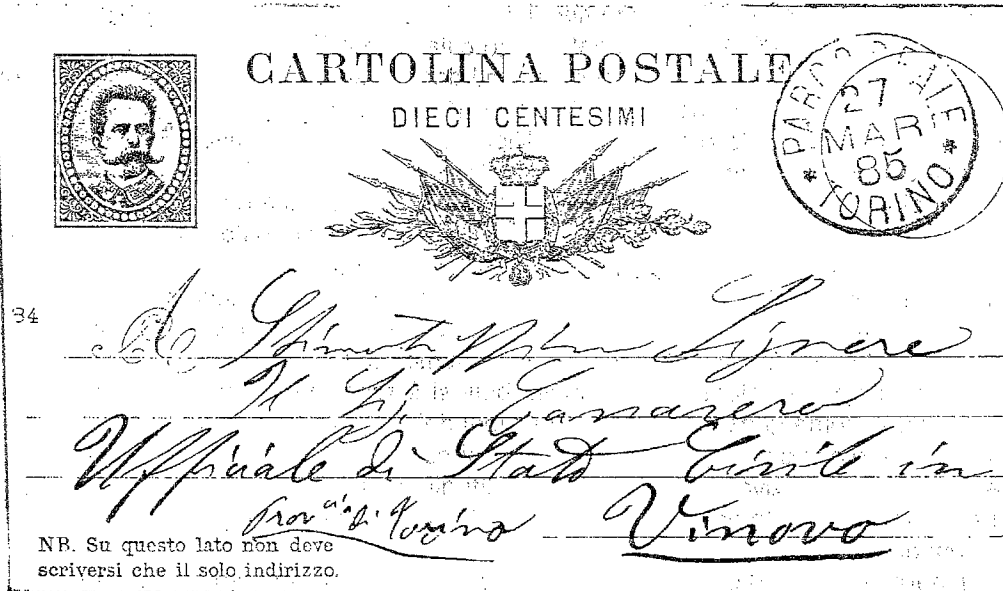 CARTOLINA POSTALE
DIECI CENTESIMI
PARCO REALE
27
MAR
85
* TORINO *
84
A Stimatissimo Signore
Il Sig. Canavero
Ufficiale di Stato Civile in
Prov.cia di Torino Vinovo
NB. Su questo lato non deve
scriversi che il solo indirizzo.